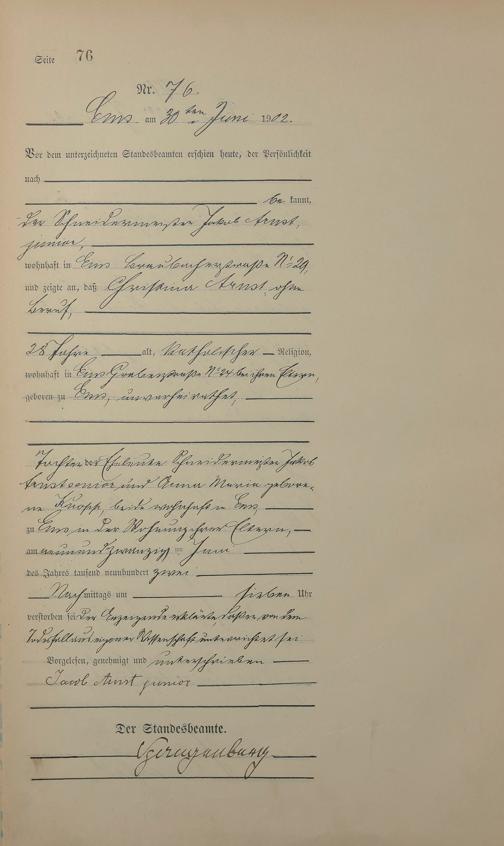 Seite 76
Nr. 76.
Ems am 30ten Juni 1902.
Vor dem unterzeichneten Standesbeamten erschien heute, der Persönlichkeit
nach
be kannt,
der Schneidermeister Jakob Arnst,
junior,
wohnhaft in Ems Braubacherstraße No 29,
und zeigte an, daß Christina Arnst, ohne
Beruf,
28 Jahre alt, katholischer Religion,
wohnhaft in Ems Grabenstraße No 24 bei ihren Eltern,
geboren zu Ems, unverheirathet,
Tochter der Eheleute Schneidermeister Jakob
Arnst senior und Anna Maria gebore-
ne, beide wohnhaft in Ems
zu Ems, in der Wohnung ihrer Eltern,
am neunundzwanzig ten Juni
des Jahres tausend neunhundert zwei
Nachmittags um sieben Uhr
verstorben sei. Der Anzeigende erklärte, daß er von dem
Todesfall aus eigener Wissenschaft unterrichtet sei
Vorgelesen, genehmigt und unterschrieben
Jacob Arnst junior
Der Standesbeamte.